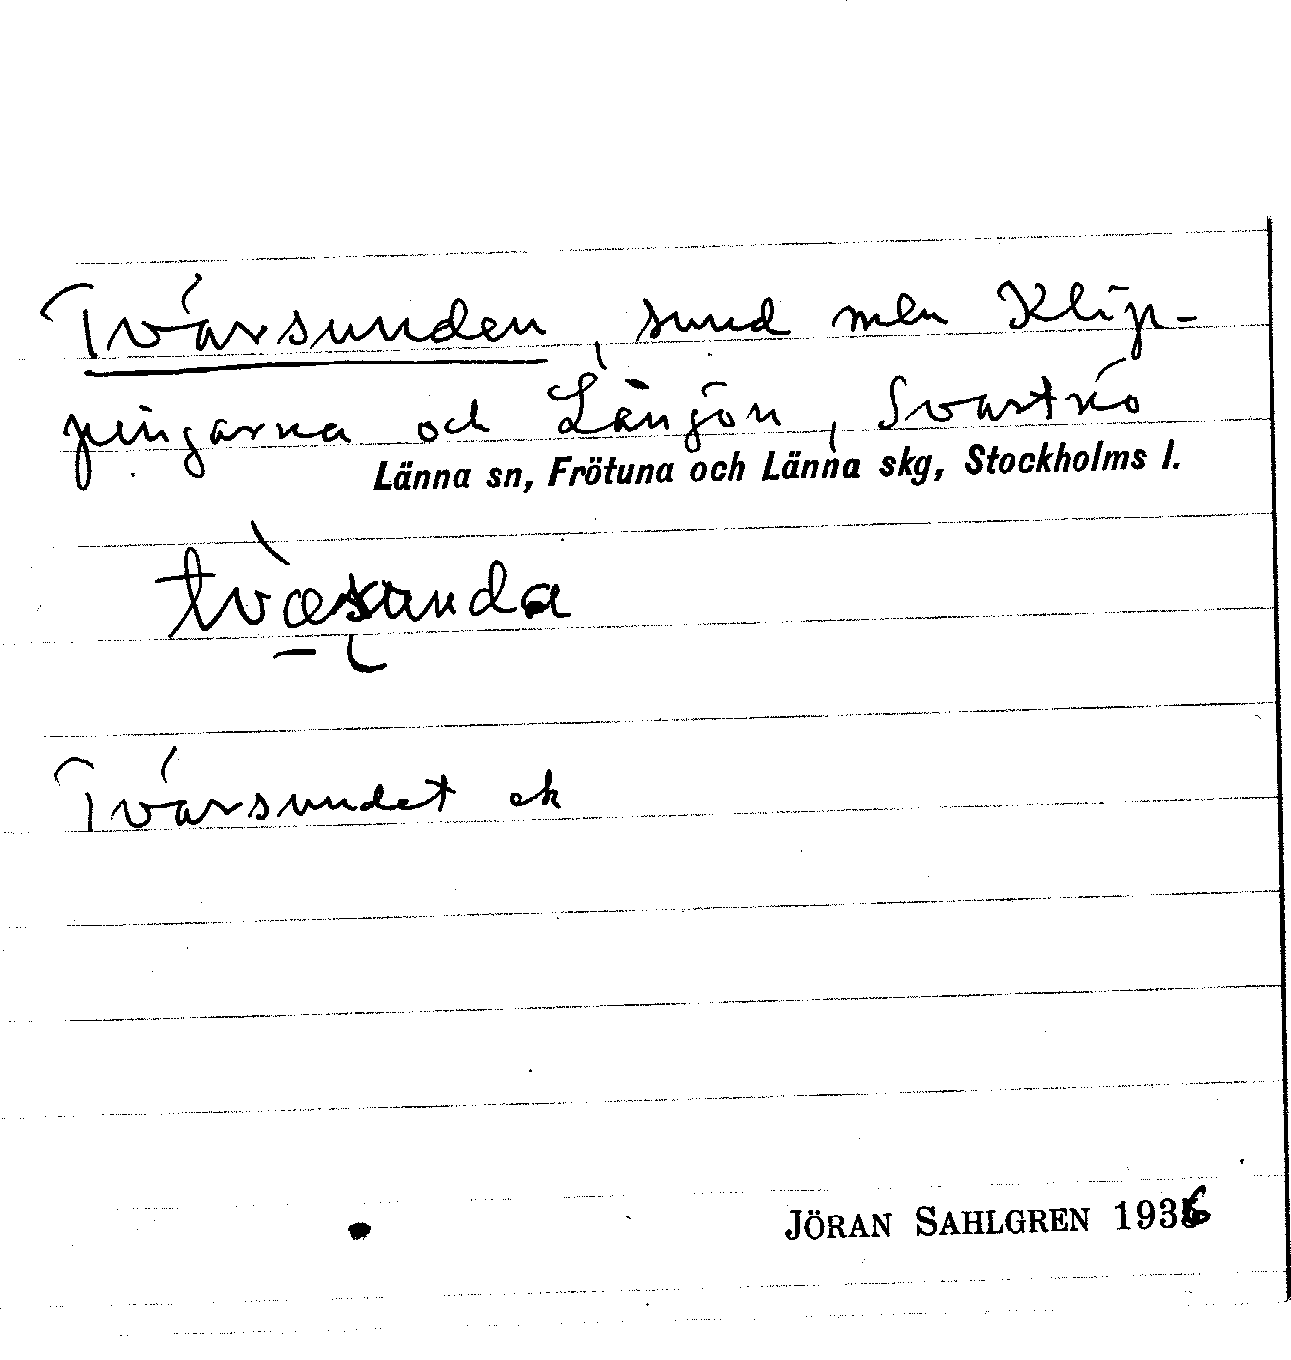 Tvärsunden, sund mln Klip-
pingarna och Långön, Svartnö
Länna sn, Frötuna och Länna skg, Stockholms l.
tvæ̠̀sunda
Tvärsundet ek
JÖRAN SAHLGREN 1936